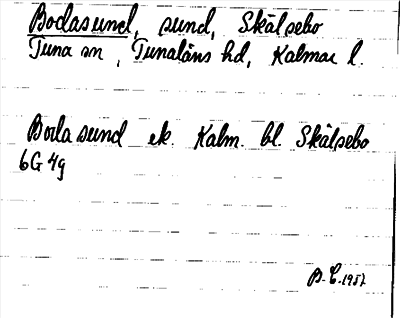 Bodasund, sund, Skälsebo
Tuna sn, Tunaläns hd, Kalmar l.
Boda sund ek. Kalm. bl. Skälsebo
6G 4g
B.E. 1957